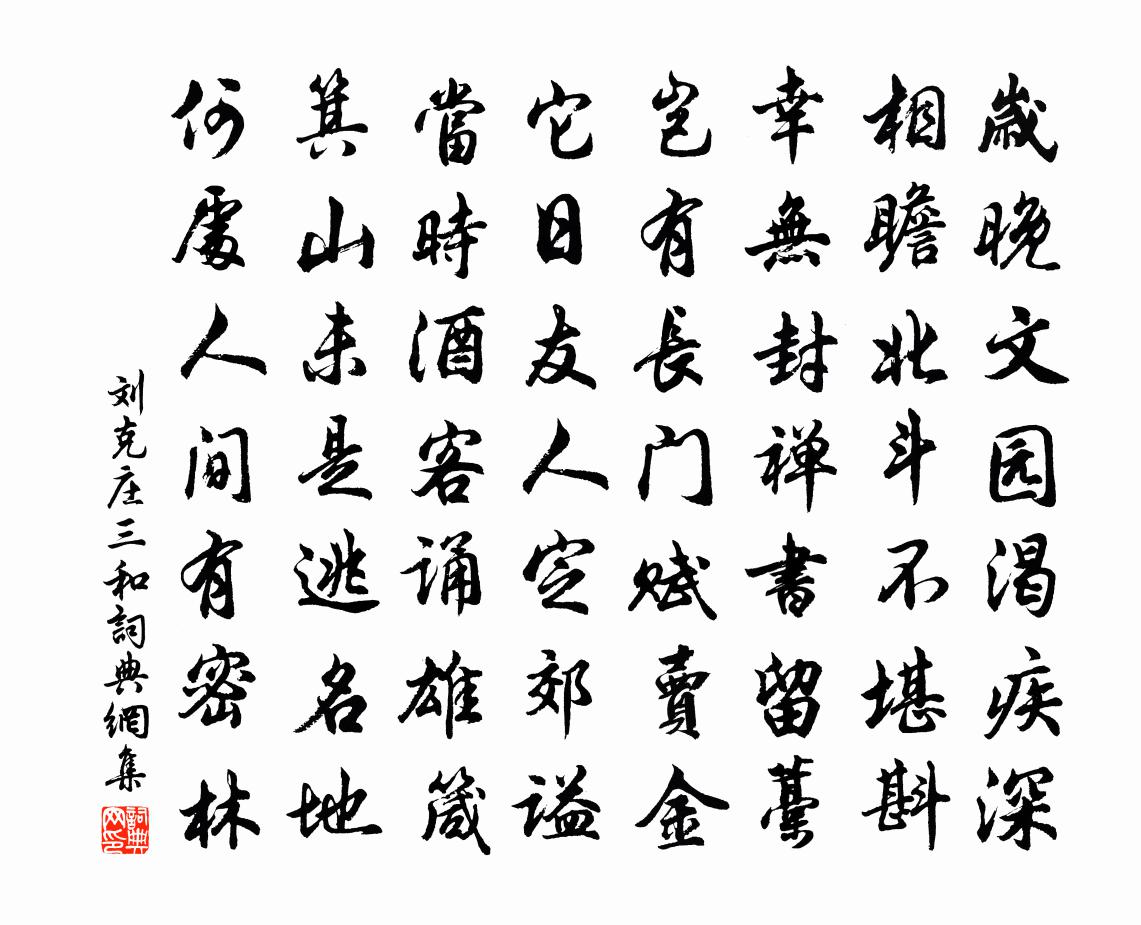 歲晚文园渴疾深
相瞻北斗不堪斟
幸無封禅書留藳
豈有長门赋賣金
它日友人定郊谥
當時酒客诵雄箴
箕山未是逃名地
何處人间有密林
刘克庄三和詞典網集
詞典网印